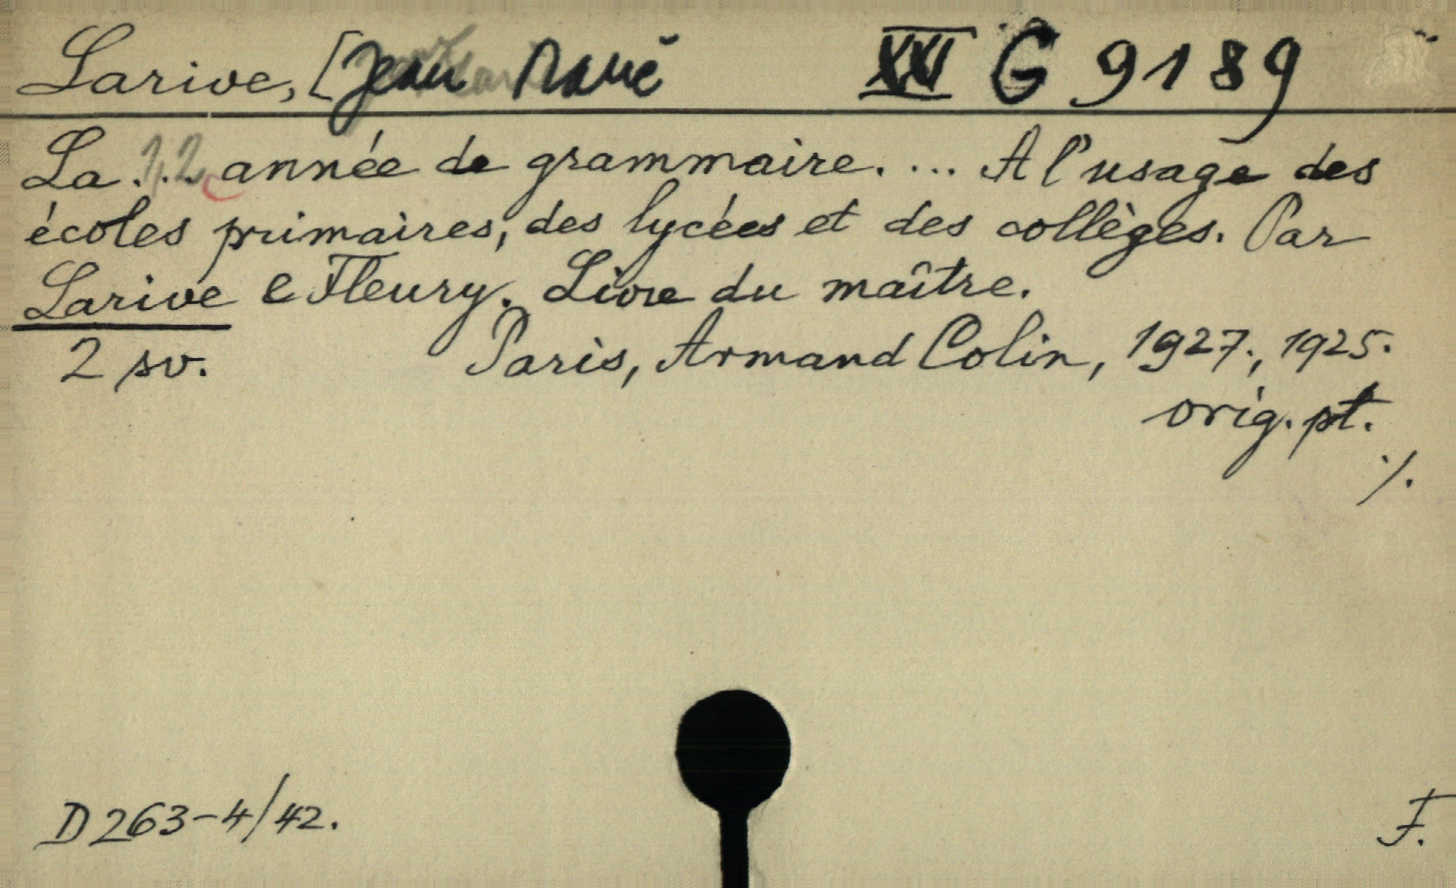 Larive, [Jean XXI G 9189
La ... 1,2 année de grammaire. ... A l'usage des
écoles primaires, des lycées et des collèges. Par
Larive e Fleury. Livre du maître.
2 sv. Paris, Armand Colin, 1927., 1925.
orig. pt.
./.
D 263-4/42.
F.